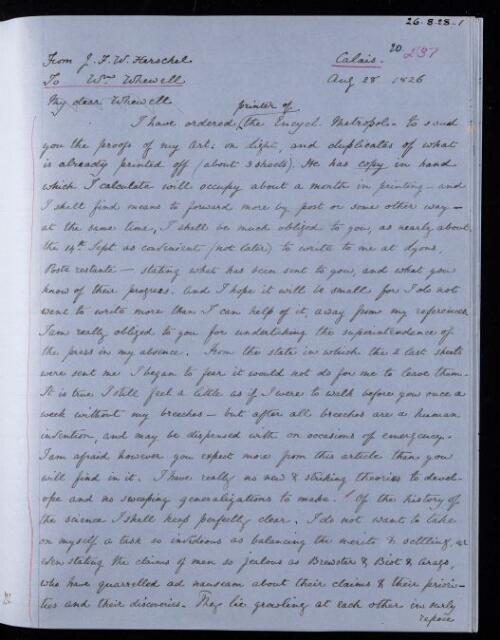 26-8-28-1
20 237
From J. F. W. Herschel Calais.
To Wm Whewell Aug 28 1826
My dear Whewell
printer of
I have ordered, the Encycl. Metropol. to send
you the proofs of my Art: on Light, and duplicates of what
is already printed off (about 3 sheets). He has copy in hand
which I calculate will occupy about a month in printing - and
I shall find means to forward more by post or some other way -
at the same time, I shall be much obliged to you, as nearly about
the 14th Sept. as convenient (not later) to write to me at Lyons,
Poste restante - stating what has been sent to you, and what you
know of their progress. And I hope it will be small for I do not
want to write more than I can help of it, away from my references
I am really obliged to you for undertaking the superintendence of
the press in my absence. From the state in which the 2 last sheets
were sent me I began to fear it would not do for me to leave them.
It is true I still feel a little as if I were to walk before you once a
week without my breeches - but after all breeches are a human
invention, and may be dispensed with on occasions of emergency.
I am afraid however you expect more from this article than you
will find in it. I have really no new & striking theories to devel-
ope and no sweeping generalizations to make. Of the history of
the science I shall keep perfectly clear. I do not want to take
on myself a task so invidious as balancing the merits & settling, or
even stating the claims of men so jealous as Brewster & Biot & Arago,
who have quarrelled ad nauseam about their claims & their priori-
ties and their discoveries. They lie growling at each other in surly
repose